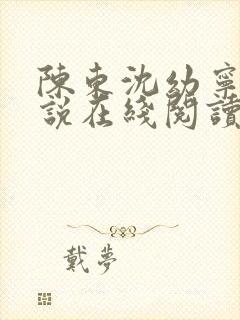 陳東沈幼寧
說在綫閱讀
戴夢